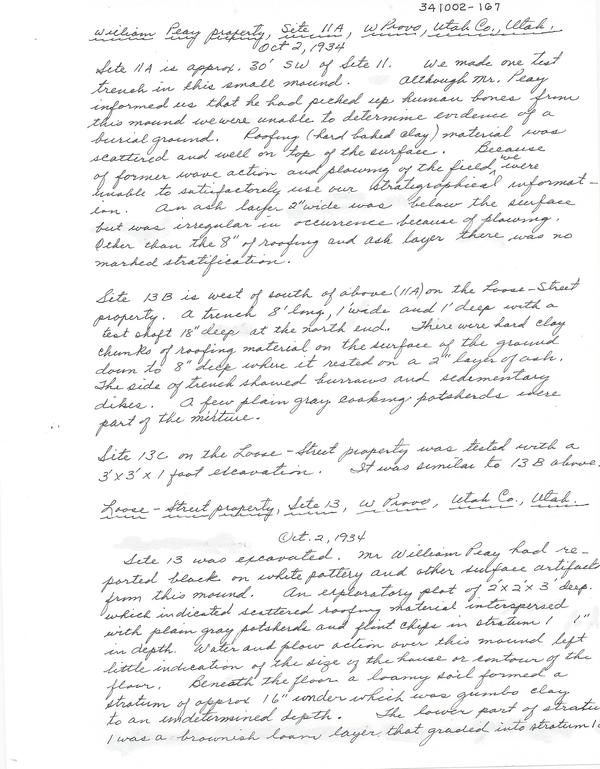 341002-167
William Peay property, Site 11A, W Provo, Utah Co., Utah.
Oct 2, 1934
Site 11A is approx. 30' SW of Site 11. We made one test
trench in this small mound. Although Mr. Peay
informed us that he had picked up human bones from
this mound we were unable to determine evidence of a
burial ground. Roofing (hard baked clay) material was
scattered and well on top of the surface. Because
of former wave action and plowing of the field, we were
unable to satisfactorely use our stratigraphical informat-
ion. An ash layer 2" wide was below the surface
but was irregular in occurrence because of plowing.
Other than the 8" of roofing and ash layer there was no
marked stratification.
Site 13B is west of south of above (11A) on the Loose-Street
property. A trench 8' long, 1' wide and 1' deep with a
test shaft 18" deep at the north end. There were hard clay
chunks of roofing material on the surface of the ground
down to 8" deep where it rested on a 2" layer of ash.
The side of trench showed burrows and sedementary
dikes. A few plain gray cooking potsherds were
part of the mixture.
Site 13C on the Loose-Street property was tested with a
3'x3'x1 foot excavation. It was similar to 13B above.
Loose-Street property, Site 13, W Provo, Utah Co., Utah.
Oct. 2, 1934
Site 13 was excavated. Mr William Peay had re-
ported black on white pottery and other surface artifacts
from this mound. An exploratory plot of 2'x2'x3' deep.
which indicated scattered roofing material interspersed
with plain gray potsherds and flint chips in stratum 1 1"
in depth. Water and plow action over this mound left
little indication of the size of the house or contour of the
floor. Beneath the floor a loamy soil formed a
stratum of approx 16" under which was gumbo clay
to an undetermined depth. The lower part of stratu
1 was a brownish loam layer that graded into stratum